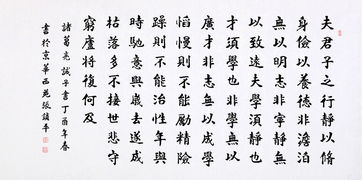 夫君子之行靜以脩
身儉以養德非澹泊
無以明志非寧靜無
以致遠夫學須靜也
才須學也非學無以
廣才非志無以成學
慆慢則不能勵精險
躁則不能治性年與
時馳意與歲去遂成
枯落多不接世悲守
窮廬將復何及
諸葛亮誡子書丁酉年春
書於京華西苑張